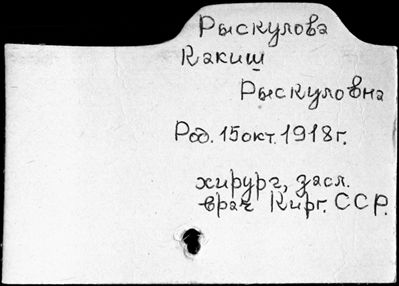 Рыскулова
Какиш
Рыскуловна
Род. 15 окт. 1918 г.
хирург, засл.
врач Кирг. ССР.